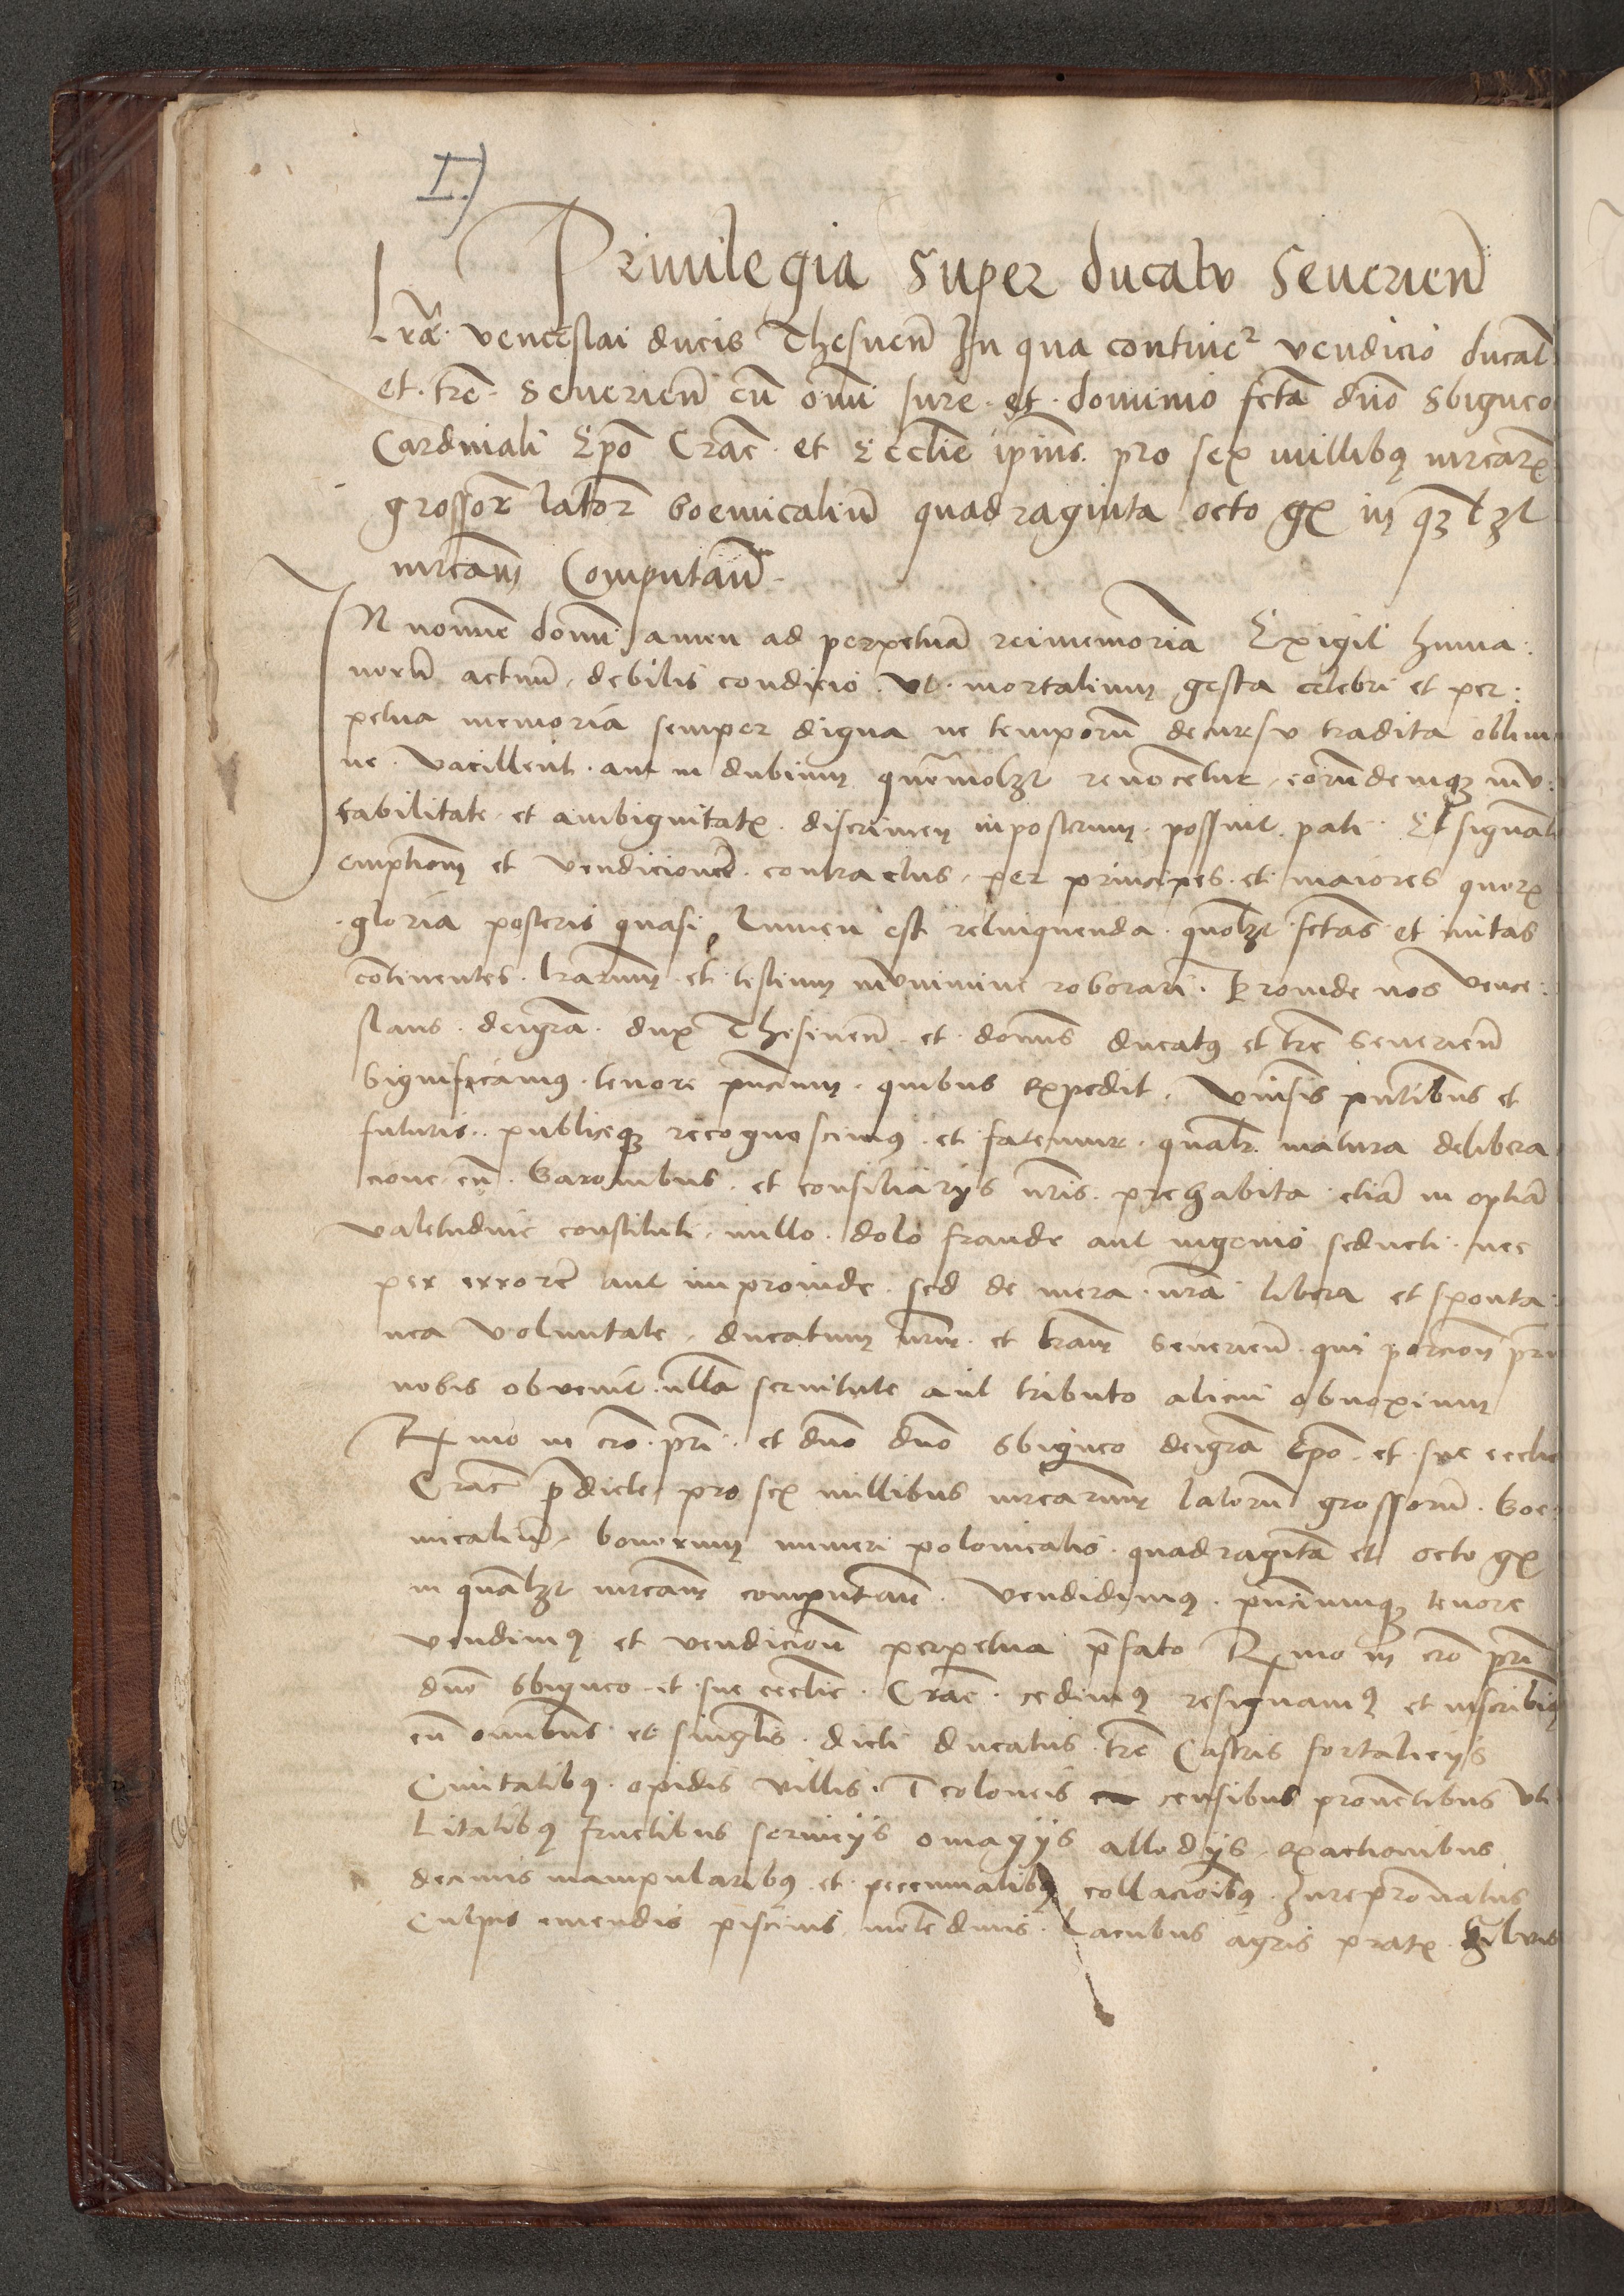 I)
Privilegia super ducatu Seuerien̄
Lr̄a Venceslai ducis Thesnen̄ In qua continet᷑ vendicio ducat̄
et tr̄e Seuerien̄ cū om̄i Iure et dominio fcta dn̄o Sbigneo
Cardinali Ep̄o Crac̄ et Ecclie ip̄ius pro sex millibꝰ mrcarꝝ
grossoꝝ latoꝝ boemicaliū quadraginta octo gꝝ in qꝫlꝫt
mrcam Computan̄
IN nomīe domī amen ad perpetuā rei memoriā Exigit huma:
norū actuum debilis condicio vt mortalium gesta celebri et per:
petua memoria semper digna ne temporū decursu tradita obliuio
ne vacillent aut in dubium quēmolꝫt reuocētur eorundemqꝫ mu:
tabilitate et ambiguitatꝭ discrimen inposterum possint pati Et signāt
emptiōn et vendicionē contractus per principes et maiores quorꝝ
gloria posteris quasi lumen est relinquenda quolꝫt fctas et initas
cōtinentes lrārum et testium munimine roborari Proinde nos Vence:
slaus dei gra dux Thesinen̄ et domn̄s ducatꝰ et tr̄e Seuerien̄
Significamꝰ tenore pn̄cium quibus expedit Vniūsis pn̄tibus et
futuris publiceqꝫ recognoscimꝰ et fatemur qualr̄ matura delibera
cione cū baronibus et consiliarijs nr̄is prehabita etiā in optiā
valetudine constituti nullo dolo fraude aut ingenio seducti nec
per errorē aut improuide sed de mera nr̄a libera et sponta:
nea voluntate ducatum nr̄m et tr̄am Seuerien̄ qui porcion
nobis obvenit nulla seruitute aut tributo alicui obnoxium
Rꝫmo in cr̄o pr̄i et dn̄o dn̄o Sbigneo dei gra Ep̄o et sue ecclie
Crac̄ p̄dicte pro sex millibus mrcarum latorū grossorū boe
micaliū bonorum numeri polonicalis quadragīta et octo gꝝ
in quālꝫt mrcam computan̄ Vendidimꝰ pn̄ciumqꝫ tenore
vendimꝰ et vendicion̄ perpetua p̄fato Rꝫmo in cr̄o pr̄i
dn̄o Sbigneo et sue ecclie Crac̄ cedimꝰ resignamꝰ et inscribimꝰ
cū om̄ibus et singlis dicti ducatus tr̄e Castris fortalicijs
Ciuitatibꝰ opidis villis Teoloneis censibus prouētibus vti
litatibꝰ fructibus seruicijs omagijs allodijs exactionibus
decimis manipularibꝰ et pecunialibꝰ collacioibꝰ Iurepronatus
Culpis emendis piscinis molēdinis lacubus agris pratꝭ Siluis